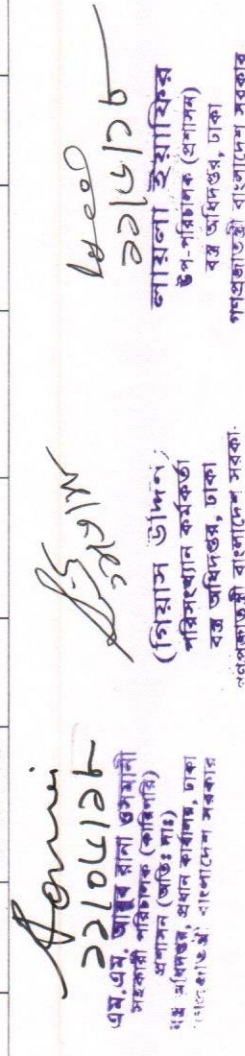 ২২/০৮/১৮
এম.এম. আইয়ুব রানা ওসমানী
সহকারী পরিচালক (কারিগরি)
প্রশাসন (অতিঃ দাঃ)
বস্ত্র অধিদপ্তর, প্রধান কার্যালয়, ঢাকা
গণপ্রজাতন্ত্রী বাংলাদেশ সরকার
(গিয়াস উদ্দিন)
পরিসংখ্যান কর্মকর্তা
বস্ত্র অধিদপ্তর, ঢাকা
গণপ্রজাতন্ত্রী বাংলাদেশ সরকা
লায়লা ইয়াফির
উপ-পরিচালক (প্রশাসন)
বস্ত্র অধিদপ্তর, ঢাকা
গণপ্রজাতন্ত্রী বাংলাদেশ সরকার